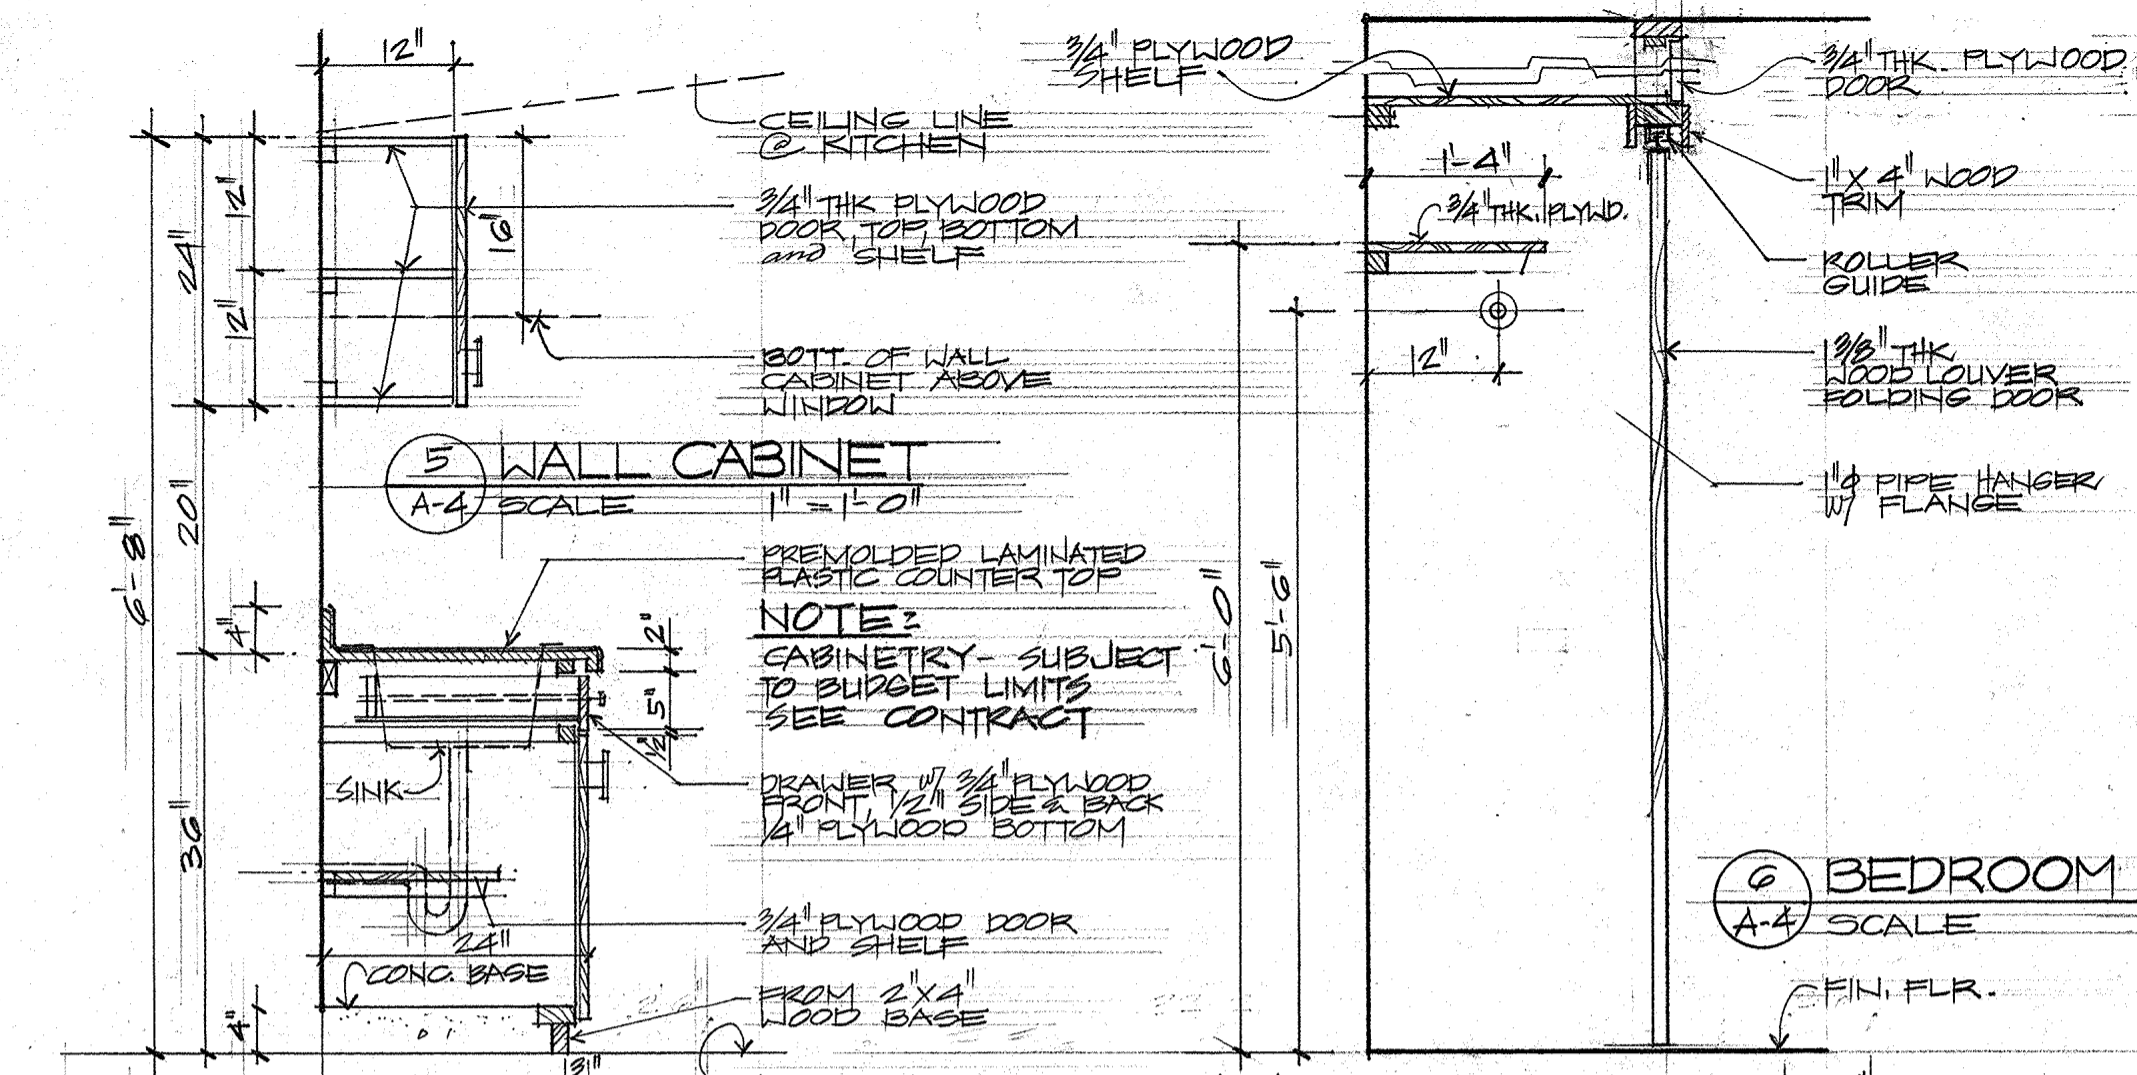 12"
CEILING LINE
@ KITCHEN
24"
12"
12"
16"
3/4" THK PLYWOOD
DOOR, TOP, BOTTOM
and SHELF
BOTT. OF WALL
CABINET ABOVE
WINDOW
5
A-4
WALL CABINET
SCALE 1" = 1'-0"
6'-8"
20"
4"
36"
4"
PREMOLDED LAMINATED
PLASTIC COUNTER TOP
NOTE:
CABINETRY - SUBJECT
TO BUDGET LIMITS
SEE CONTRACT
2"
5"
1/2"
SINK
DRAWER W/ 3/4" PLYWOOD
FRONT, 1/2" SIDE & BACK
1/4" PLYWOOD BOTTOM
3/4" PLYWOOD DOOR
AND SHELF
24"
CONC. BASE
FROM 2"X4"
WOOD BASE
3/4" PLYWOOD
SHELF
3/4" THK. PLYWOOD
DOOR
1'-4"
3/4" THK. PLYWD.
1" X 4" WOOD
TRIM
ROLLER
GUIDE
12"
1 3/8" THK
WOOD LOUVER
FOLDING DOOR
1"Φ PIPE HANGER
W/ FLANGE
6'-0"
5'-6"
6
A-4
BEDROOM
SCALE
FIN. FLR.